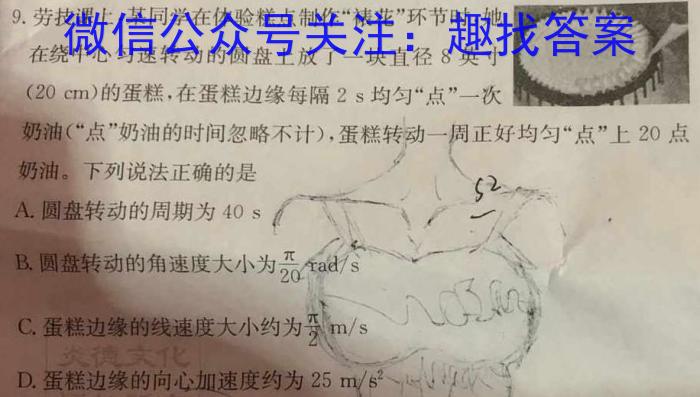 9. 劳技课上,某同学在体验糕点制作“裱花”环节时,她
微信公众号关注：趣找答案
在绕中心匀速转动的圆盘上放了一块直径 8 英寸
(20 cm)的蛋糕,在蛋糕边缘每隔 2 s 均匀“点”一次
奶油(“点”奶油的时间忽略不计),蛋糕转动一周正好均匀“点”上 20 点
奶油。下列说法正确的是
A. 圆盘转动的周期为 40 s
B. 圆盘转动的角速度大小为π/20 rad/s
C. 蛋糕边缘的线速度大小约为π/2 m/s
炎德文化
D. 蛋糕边缘的向心加速度约为 25 m/s²